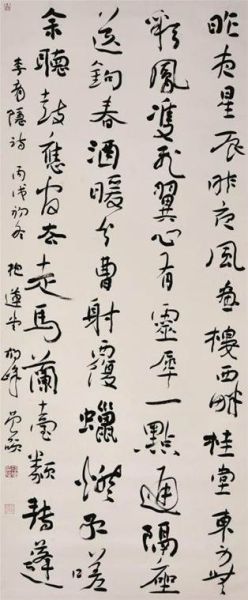 昨夜星辰昨夜風畫樓西畔桂堂東身無
彩鳳雙飛翼心有靈犀一點通隔座
送鉤春酒暖分曹射覆蠟燈紅嗟
余聽鼓應官去走馬蘭臺類轉蓬
李商隱詩 丙戌初冬